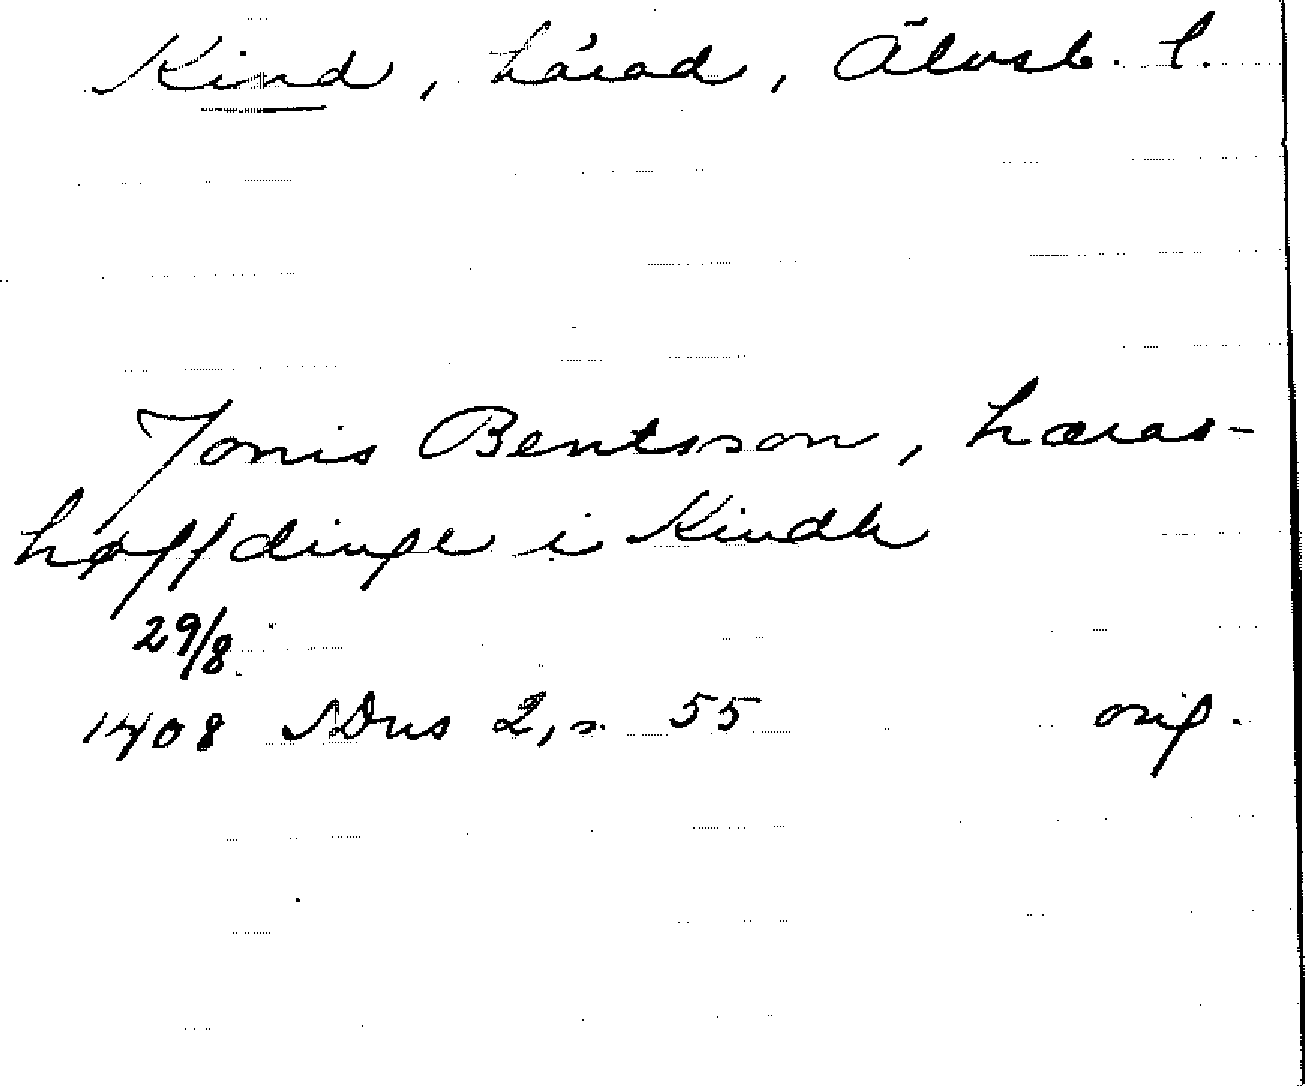 Kind, härad, Älvsb. l.
Jonis Bentsson, hæras-
høffdinge i Kindh
29/8
1408 SDns 2, s. 55 orig.